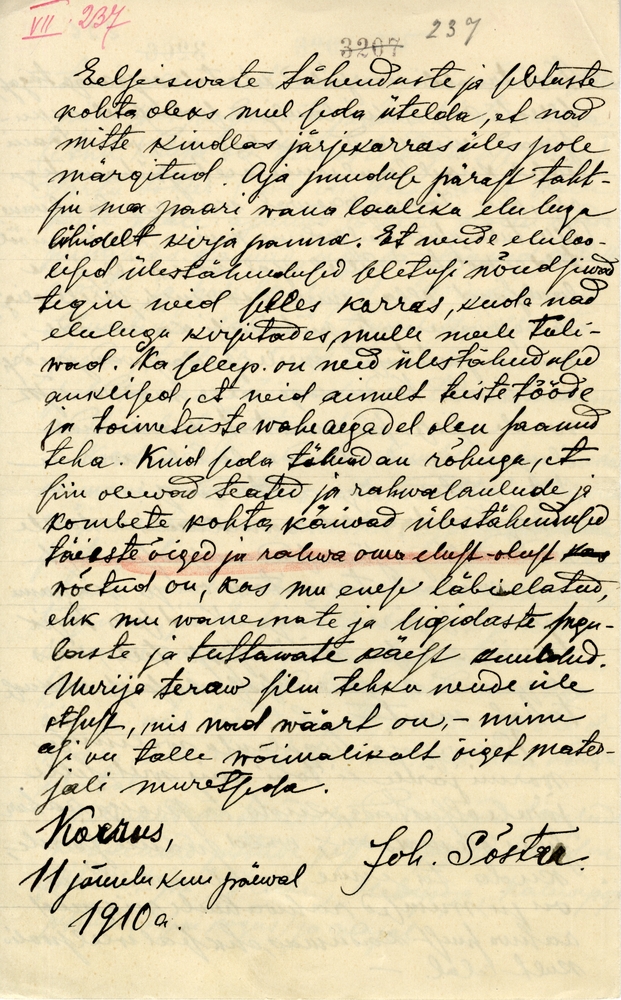 VII 237
3207 237
Eelseiswate tähenduste ja seletuste
kohta oleks mul seda ütelda, et nad
mitte kindlas järjekorras üles pole
märgitud. Aja puuduse pärast taht-
sin ma paari wana laulika eluluga
lühidelt kirja panna. Et nende eluloo-
lised ülestähendused seletusi nõudsiwad
tegin neid selles korras, kuda nad
elulugu kirjutades mulle meele tuli-
wad. Ka sellep. on need ülestähendused
auklised, et neid ainult teiste tööde
ja toimetuste waheaegadel olen saanud
teha. Kuid seda tähendan rõhuga, et
siin olewad teated ja rahwalaulude ja
kombete kohta käiwad ülestähendused
täieste õiged ja rahwa oma elust-olust
wõetud on, kas mu enese läbielatud,
ehk mu wanemate ja ligidaste sugu-
laste ja tuttawate käest kuuldud.
Uurija teraw silm tehku nende üle
otsust, mis nad wäärt on, - minu
asi on talle wõimalikult õiget mater-
jali muretseda.
Kaarus,
Joh. Sõster.
11 jaanuari kuu päewal
1910 a.